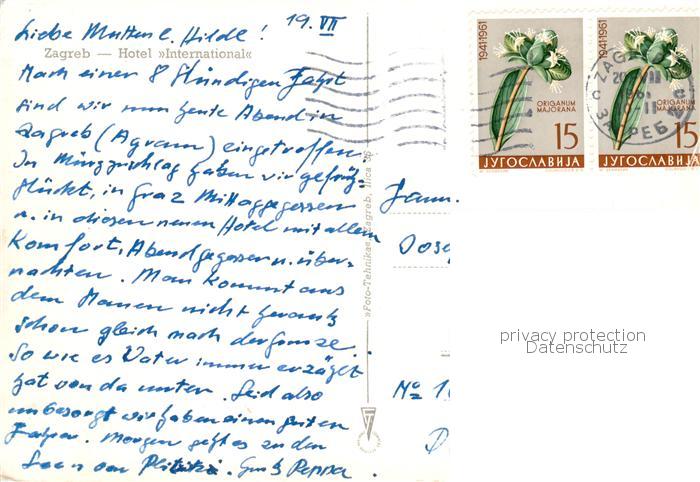 19. VII
Liebe Mutter u. Hilde!
Zagreb — Hotel »International«
Nach einer 8 stündigen Fahrt
sind wir nun heute Abend in
Zagreb (Agram) eingetroffen.
In Mürzzuschlag haben wir gefrüh-
stückt, in Graz Mittaggegessen
u. in diesen neuen Hotel mit allem
Komfort, Abendgegessen u. über-
nachten. Man kommt aus
dem Staunen nicht heraus
schon gleich nach der Grenze.
So wie es Vater immer erzählt
hat von da unten. Seid also
unbesorgt wir haben einen guten
Fahrer. Morgen geht es zu den
Seen von Plitvitz. Gruß Peppa
»Foto-Tehnika«, Zagreb, Ilica
Fam.
Josef
No
1941-1961
ORIGANUM
MAJORANA
15
ЈУГОСЛАВИЈА
1941-1961
ORIGANUM
MAJORANA
15
ЈУГОСЛАВИЈА
ZAG
ЗАГРЕБ
privacy protection
Datenschutz